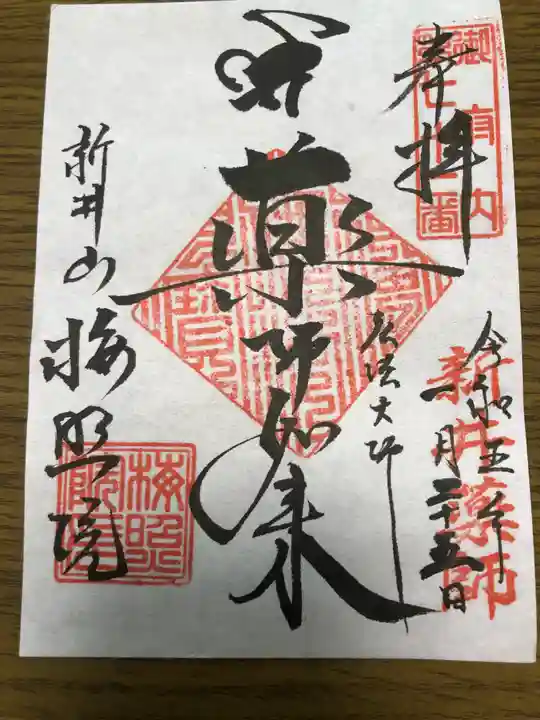 奉拝
御府内
番
令和五年
一月二十五日
新井薬師
薬師如来
弘法大師
新井山梅照院
梅照院